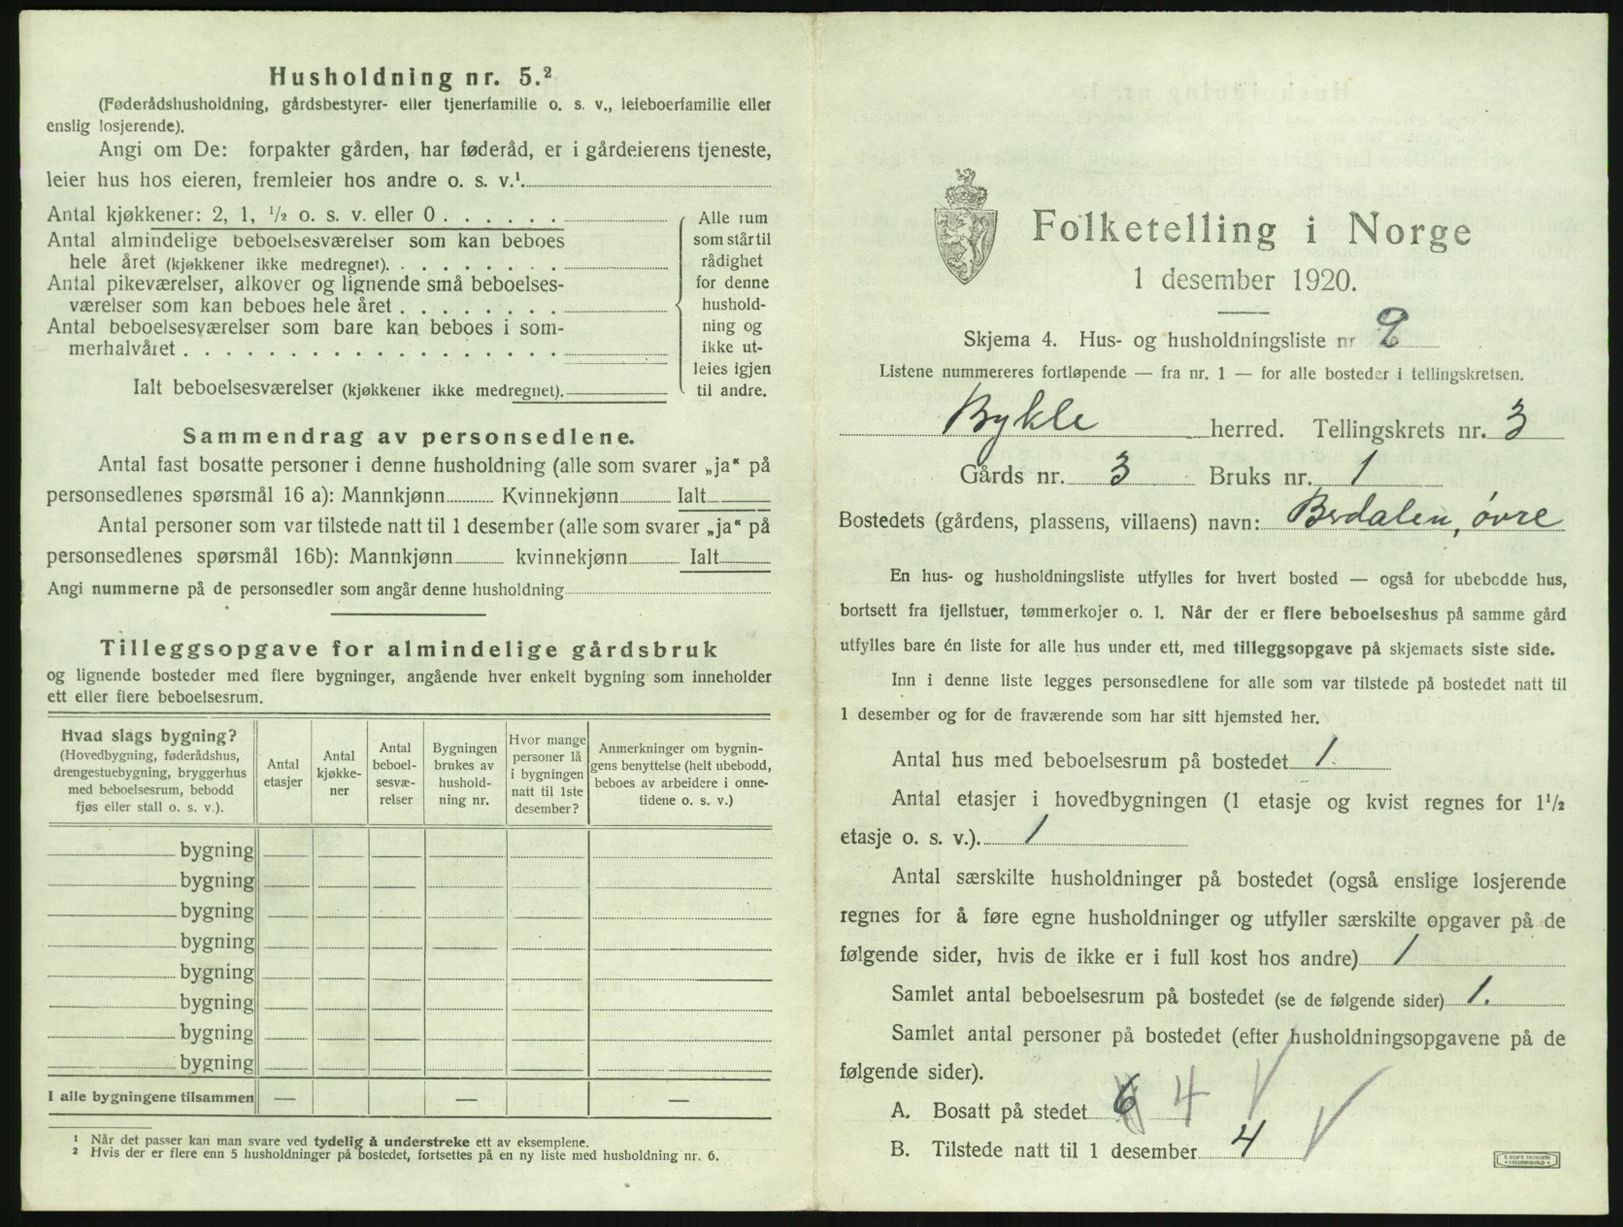 Husholdning nr. 5.²
(Føderådshusholdning, gårdsbestyrer- eller tjenerfamilie o. s. v., leieboerfamilie eller
enslig losjerende).
Angi om De: forpakter gården, har føderåd, er i gårdeierens tjeneste,
leier hus hos eieren, fremleier hos andre o. s. v.¹
Antal kjøkkener: 2, 1, ½ o. s. v. eller 0 . . . . . .
Antal almindelige beboelsesværelser som kan beboes
hele året (kjøkkener ikke medregnet). . . . . . . . .
Antal pikeværelser, alkover og lignende små beboelses-
værelser som kan beboes hele året . . . . . . . .
Antal beboelsesværelser som bare kan beboes i som-
merhalvåret . . . . . . . . . . . . . . . . . .
Ialt beboelsesværelser (kjøkkener ikke medregnet).
Alle rum
som står til
rådighet
for denne
hushold-
ning og
ikke ut-
leies igjen
til andre.
Sammendrag av personsedlene.
Antal fast bosatte personer i denne husholdning (alle som svarer „ja“ på
personsedlenes spørsmål 16 a): Mannkjønn Kvinnekjønn Ialt
Antal personer som var tilstede natt til 1 desember (alle som svarer „ja“ på
personsedlenes spørsmål 16b): Mannkjønn kvinnekjønn Ialt
Angi nummerne på de personsedler som angår denne husholdning
Tilleggsopgave for almindelige gårdsbruk
og lignende bosteder med flere bygninger, angående hver enkelt bygning som inneholder
ett eller flere beboelsesrum.
Hvad slags bygning?
(Hovedbygning, føderådshus,
drengestuebygning, bryggerhus
med beboelsesrum, bebodd
fjøs eller stall o. s. v.).
Antal
etasjer
Antal
kjøkke-
ner
Antal
beboel-
sesvæ-
relser
Bygningen
brukes av
hushold-
ning nr.
Hvor mange
personer lå
i bygningen
natt til 1ste
desember?
Anmerkninger om bygnin-
gens benyttelse (helt ubebodd,
beboes av arbeidere i onne-
tidene o. s. v.)
bygning
bygning
bygning
bygning
bygning
bygning
bygning
bygning
I alle bygningene tilsammen — — —
¹ Når det passer kan man svare ved tydelig å understreke ett av eksemplene.
² Hvis der er flere enn 5 husholdninger på bostedet, fortsettes på en ny liste med husholdning nr. 6.
Folketelling i Norge
1 desember 1920.
Skjema 4. Hus- og husholdningsliste nr 2
Listene nummereres fortløpende — fra nr. 1 — for alle bosteder i tellingskretsen.
Bykle herred. Tellingskrets nr. 3
Gårds nr. 3 Bruks nr. 1
Bostedets (gårdens, plassens, villaens) navn: Berdalen, øvre
En hus- og husholdningsliste utfylles for hvert bosted — også for ubebodde hus,
bortsett fra fjellstuer, tømmerkojer o. l. Når der er flere beboelseshus på samme gård
utfylles bare én liste for alle hus under ett, med tilleggsopgave på skjemaets siste side.
Inn i denne liste legges personsedlene for alle som var tilstede på bostedet natt til
1 desember og for de fraværende som har sitt hjemsted her.
Antal hus med beboelsesrum på bostedet 1.
Antal etasjer i hovedbygningen (1 etasje og kvist regnes for 1½
etasje o. s. v.). 1
Antal særskilte husholdninger på bostedet (også enslige losjerende
regnes for å føre egne husholdninger og utfyller særskilte opgaver på de
følgende sider, hvis de ikke er i full kost hos andre) 1
Samlet antal beboelsesrum på bostedet (se de følgende sider) 1.
Samlet antal personer på bostedet (efter husholdningsopgavene på de
følgende sider).
A. Bosatt på stedet 6 4
B. Tilstede natt til 1 desember 4